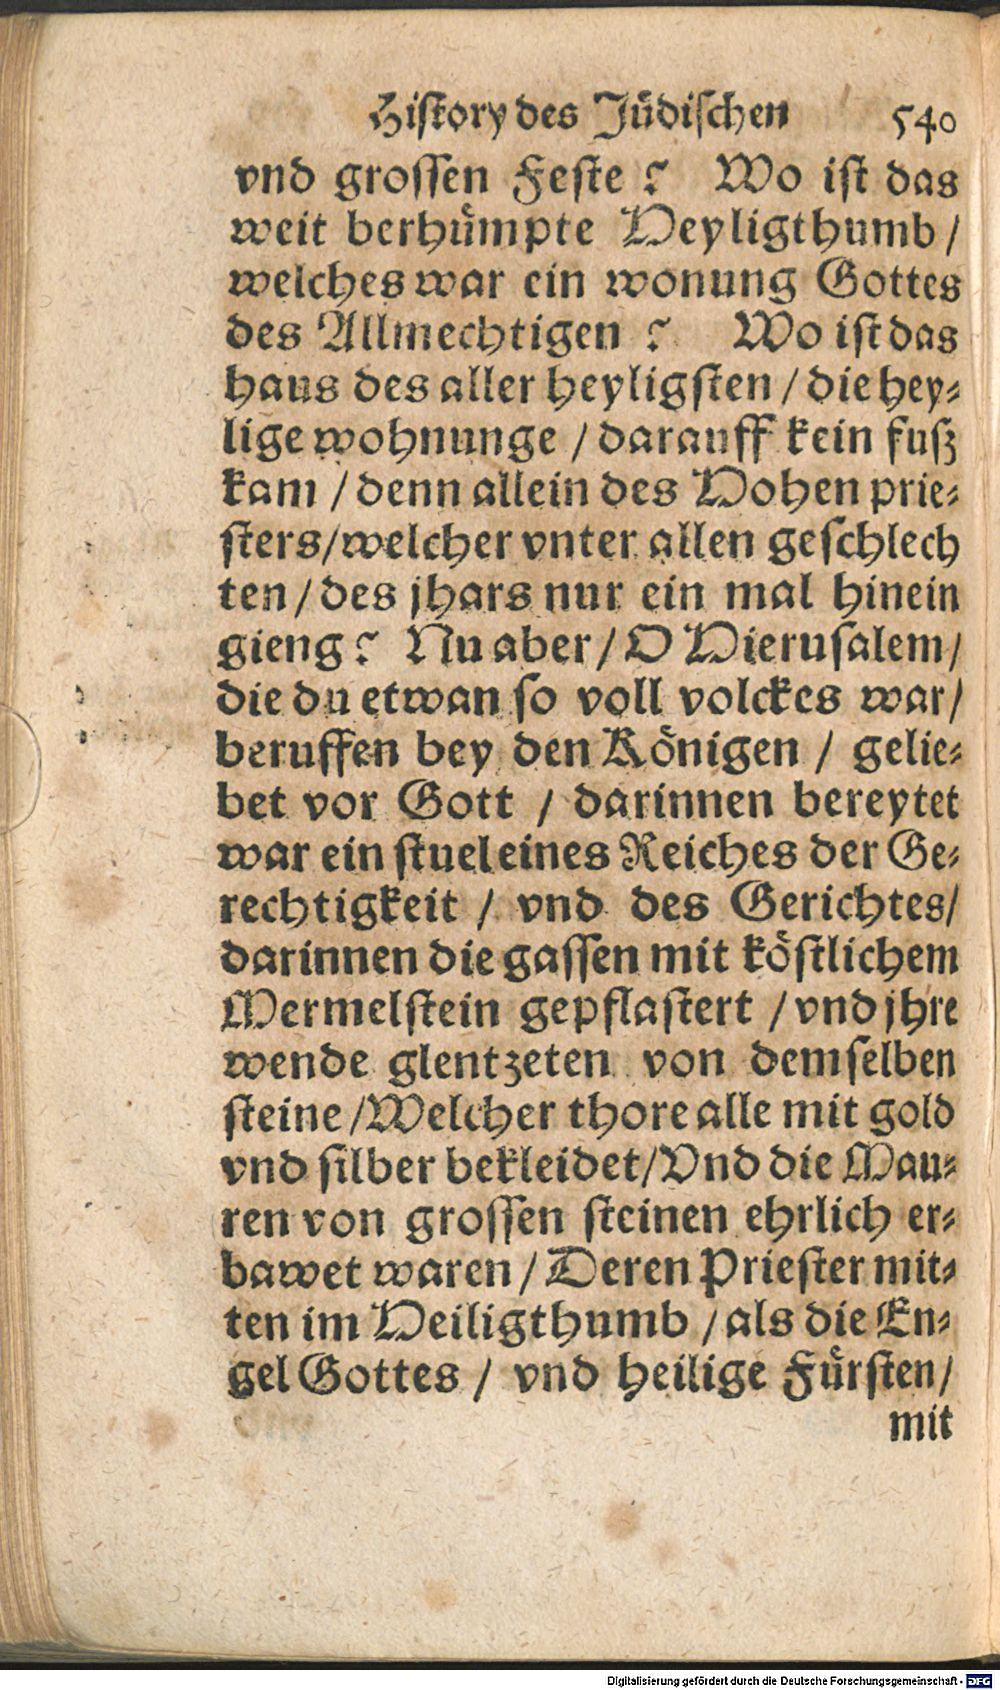 History des Jüdischen 540
vnd grossen Feste? Wo ist das
weit berhümpte Heyligthumb/
welches war ein wonung Gottes
des Allmechtigen? Wo ist das
haus des aller heyligsten/ die hey-
lige wohnunge/ darauff kein fuß
kam/ denn allein des Hohen prie-
sters/ welcher vnter allen geschlech
ten/ des jhars nur ein mal hinein
gieng? Nu aber/ O Hierusalem/
die du etwan so voll volckes war/
beruffen bey den Königen/ gelie-
bet vor Gott/ darinnen bereytet
war ein stuel eines Reiches der Ge-
rechtigkeit/ vnd des Gerichtes/
darinnen die gassen mit köstlichem
Mermelstein gepflastert/ vnd jhre
wende glentzeten von demselben
steine/ Welcher thore alle mit gold
vnd silber bekleidet/ Vnd die Mau-
ren von grossen steinen ehrlich er-
bawet waren/ Deren Priester mit-
ten im Heiligthumb/ als die En-
gel Gottes/ vnd heilige Fürsten/
mit
Digitalisierung gefördert durch die Deutsche Forschungsgemeinschaft - DFG